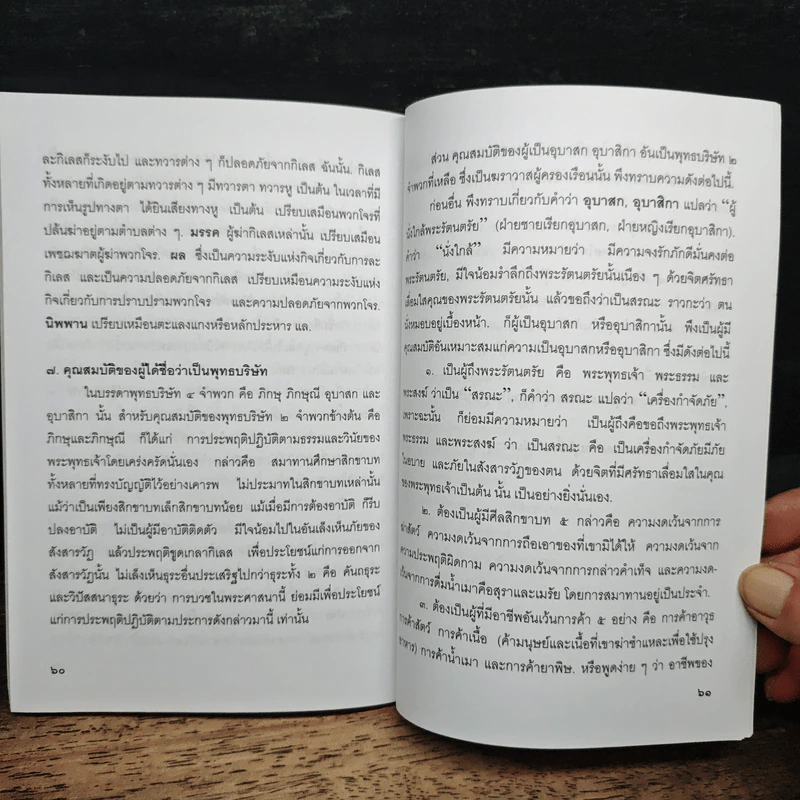 ละกิเลสก็ระงับไป และทวารต่าง ๆ ก็ปลอดภัยจากกิเลส ฉันนั้น. กิเลส
ทั้งหลายที่เกิดอยู่ตามทวารต่าง ๆ มีทวารตา ทวารหู เป็นต้น ในเวลาที่มี
การเห็นรูปทางตา ได้ยินเสียงทางหู เป็นต้น เปรียบเสมือนพวกโจรที่
ปล้นฆ่าอยู่ตามตำบลต่าง ๆ. มรรค ผู้ฆ่ากิเลสเหล่านั้น เปรียบเสมือน
เพชฌฆาตผู้ฆ่าพวกโจร. ผล ซึ่งเป็นความระงับแห่งกิจเกี่ยวกับการละ
กิเลส และเป็นความปลอดภัยจากกิเลส เปรียบเหมือนความระงับแห่ง
กิจเกี่ยวกับการปราบปรามพวกโจร และความปลอดภัยจากพวกโจร.
นิพพาน เปรียบเหมือนตะแลงแกงหรือหลักประหาร แล.
๗. คุณสมบัติของผู้ได้ชื่อว่าเป็นพุทธบริษัท
ในบรรดาพุทธบริษัท ๔ จำพวก คือ ภิกษุ ภิกษุณี อุบาสก และ
อุบาสิกา นั้น สำหรับคุณสมบัติของพุทธบริษัท ๒ จำพวกข้างต้น คือ
ภิกษุและภิกษุณี ก็ได้แก่ การประพฤติปฏิบัติตามธรรมและวินัยของ
พระพุทธเจ้าโดยเคร่งครัดนั่นเอง กล่าวคือ สมาทานศึกษาสิกขาบท
ทั้งหลายที่ทรงบัญญัติไว้อย่างเคารพ ไม่ประมาทในสิกขาบทเหล่านั้น
แม้ว่าเป็นเพียงสิกขาบทเล็กสิกขาบทน้อย แม้เมื่อมีการต้องอาบัติ ก็รีบ
ปลงอาบัติ ไม่เป็นผู้มีอาบัติติดตัว มีใจน้อมไปในอันเล็งเห็นภัยของ
สังสารวัฏ แล้วประพฤติขูดเกลากิเลส เพื่อประโยชน์แก่การออกจาก
สังสารวัฏนั้น ไม่เล็งเห็นธุระอื่นประเสริฐไปกว่าธุระทั้ง ๒ คือ คันถธุระ
และวิปัสสนาธุระ ด้วยว่า การบวชในพระศาสนานี้ ย่อมมีเพื่อประโยชน์
แก่การประพฤติปฏิบัติตามประการดังกล่าวมานี้ เท่านั้น
๖๐
ส่วน คุณสมบัติของผู้เป็นอุบาสก อุบาสิกา อันเป็นพุทธบริษัท ๒
จำพวกที่เหลือ ซึ่งเป็นฆราวาสผู้ครองเรือนนั้น พึงทราบความดังต่อไปนี้.
ก่อนอื่น พึงทราบเกี่ยวกับคำว่า อุบาสก, อุบาสิกา แปลว่า “ผู้
นั่งใกล้พระรัตนตรัย” (ฝ่ายชายเรียกอุบาสก, ฝ่ายหญิงเรียกอุบาสิกา).
คำว่า “นั่งใกล้” มีความหมายว่า มีความจงรักภักดีมั่นคงต่อ
พระรัตนตรัย, มีใจน้อมรำลึกถึงพระรัตนตรัยนั้นเนือง ๆ ด้วยจิตศรัทธา
เลื่อมใสคุณของพระรัตนตรัยนั้น แล้วขอถึงว่าเป็นสรณะ ราวกะว่า ตน
นั่งหมอบอยู่เบื้องหน้า. ก็ผู้เป็นอุบาสก หรืออุบาสิกานั้น พึงเป็นผู้มี
คุณสมบัติอันเหมาะสมแก่ความเป็นอุบาสกหรืออุบาสิกา ซึ่งมีดังต่อไปนี้
๑. เป็นผู้ถึงพระรัตนตรัย คือ พระพุทธเจ้า พระธรรม และ
พระสงฆ์ ว่าเป็น “สรณะ”, ก็คำว่า สรณะ แปลว่า “เครื่องกำจัดภัย”,
เพราะฉะนั้น ก็ย่อมมีความหมายว่า เป็นผู้ถึงคือขอถึงพระพุทธเจ้า
พระธรรม และพระสงฆ์ ว่า เป็นสรณะ คือ เป็นเครื่องกำจัดภัยมีภัย
ในอบาย และภัยในสังสารวัฏของตน ด้วยจิตที่มีศรัทธาเลื่อมใสในคุณ
ของพระพุทธเจ้าเป็นต้น นั้น เป็นอย่างยิ่งนั่นเอง.
๒. ต้องเป็นผู้มีศีลสิกขาบท ๕ กล่าวคือ ความงดเว้นจากการ
ฆ่าสัตว์ ความงดเว้นจากการถือเอาของที่เขามิได้ให้ ความงดเว้นจาก
ความประพฤติผิดกาม ความงดเว้นจากการกล่าวคำเท็จ และความงด-
เว้นจากการดื่มน้ำเมาคือสุราและเมรัย โดยการสมาทานอยู่เป็นประจำ.
๓. ต้องเป็นผู้ที่มีอาชีพอันเว้นการค้า ๕ อย่าง คือ การค้าอาวุธ
การค้าสัตว์ การค้าเนื้อ (ค้ามนุษย์และเนื้อที่เขาฆ่าชำแหละเพื่อใช้ปรุง
อาหาร) การค้าน้ำเมา และการค้ายาพิษ. หรือพูดง่าย ๆ ว่า อาชีพของ
๖๑